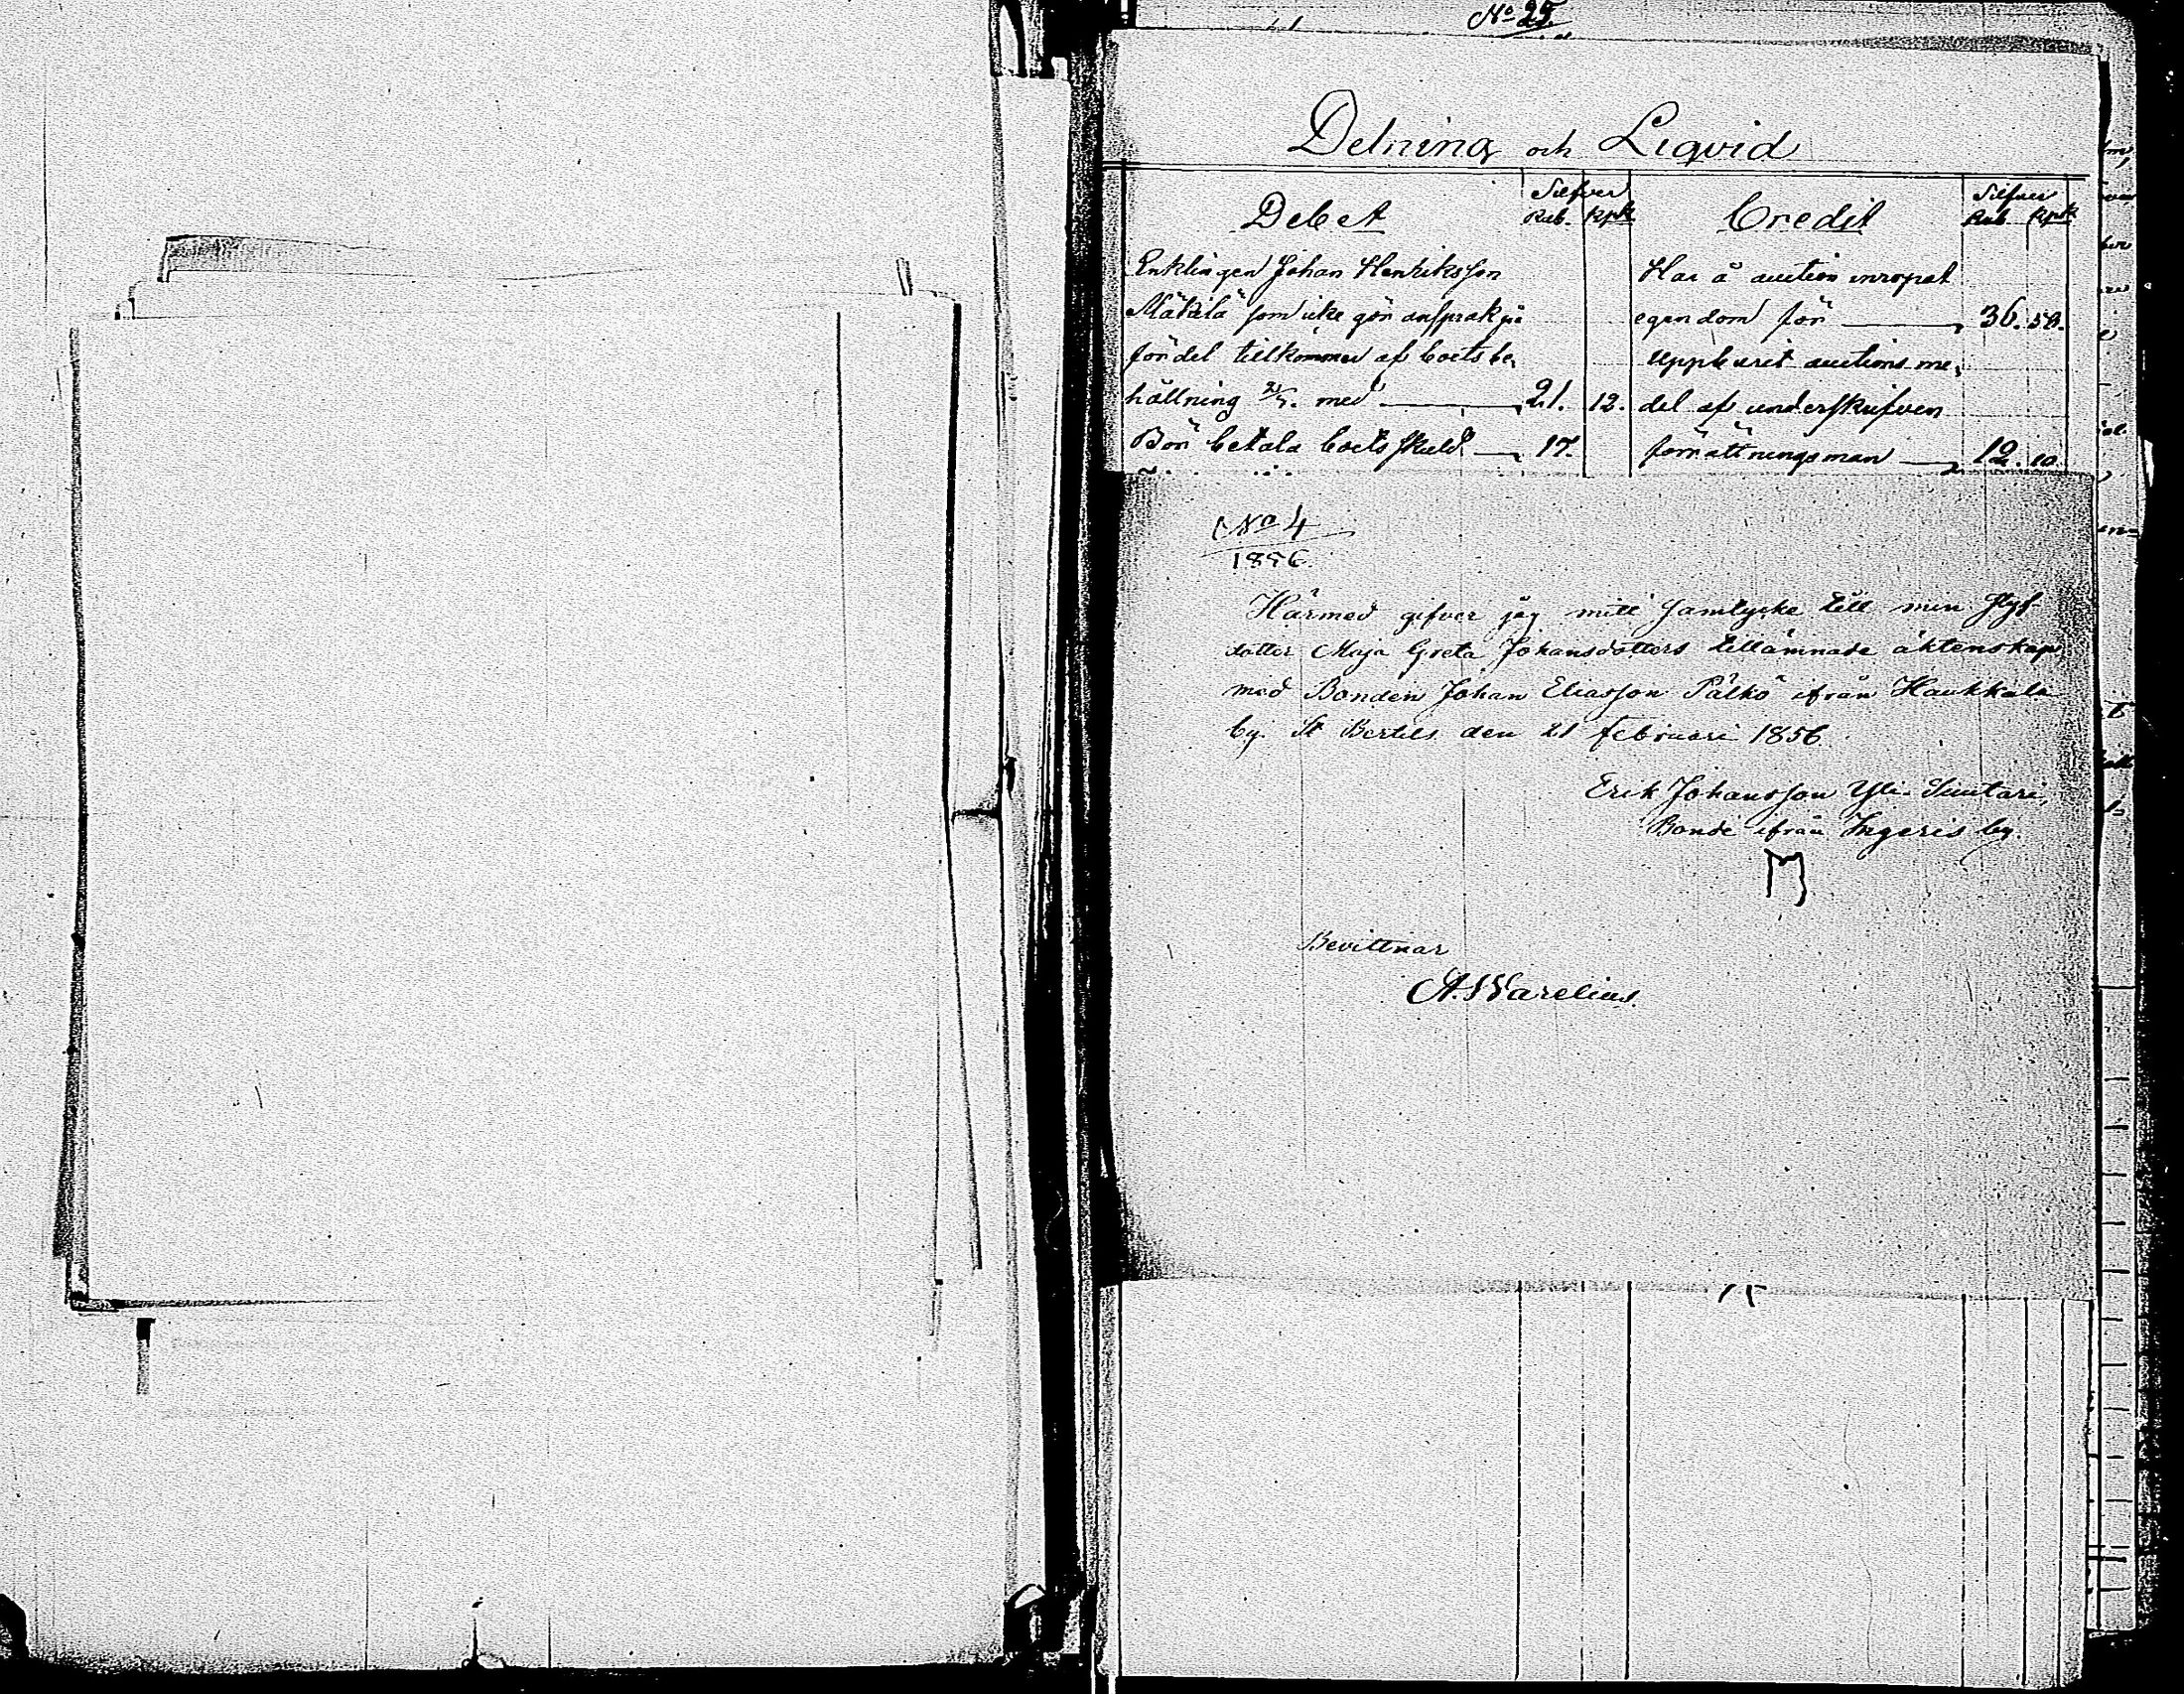 No 25
Delning och Liqvid
Debet
Silfver
Rub. Kpk
Credit
Silfver
Rub. Kpk
Enklingen Johan Henriksson
Mäkilä som icke gör anspråk på
fördel tillkommer af boets be,
hållning med 21. 12.
Bör betala boets skuld 17.
Har å auction inropat
egendom för 36. 58.
Uppburit auctions me,
del af underskrifven
förrättningsman 12. 10
No 4
1856.
Härmed gifver jag mitt samtycke till min styf-
dotter Maja Greta Johansdotters tillämnade äktenskap
med Bonden Johan Eliasson Pälkö ifrån Haukkala
by. St Bertils den 21 februari 1856.
Erik Johansson Yli-Simtari,
Bonde ifrån Ingeris by.
Bevittnar
A. Warelius.